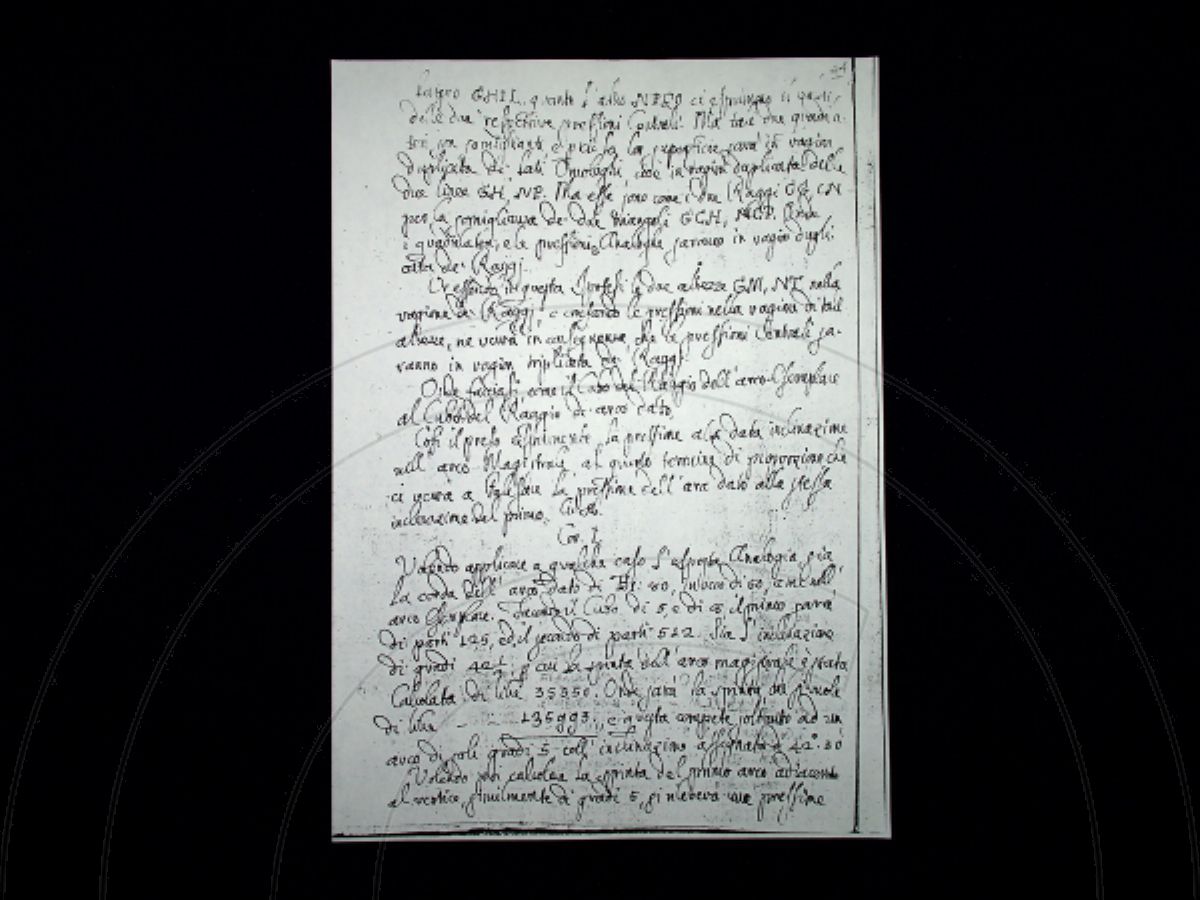 44
latero GHIL, quanto l'altro NPEO ci esprimano li quozi-
delle due respettive pressioni Centrali. Ma tra due quadrila-
teri, son somiglianti, e perciò la lor superficie sarà in ragion
duplicata di lati Omologhi cioè in ragion duplicata delle
due linee GH, NP. Ma esse sono come i due Raggi CG, CN
per la somiglianza de' due triangoli GCH, NCP. Onde
i quadrilateri, e le pressioni Analoghe saranno in ragion dupli-
cata de' Raggi.
Or essendo in questa Ipotesi le due altezze GM, NT nella
ragione de' Raggi, e crescendo le pressioni nella ragion di tali
altezze, ne verrà in conseguenza che le pressioni Centrali sa-
ranno in ragion triplicata de' Raggi.
Onde facciasi, come il Cubo del Raggio dell'arco Esemplare
al Cubo del Raggio di arco dato,
Così il peso esprimente la pressione alla data inclinazione
nell'arco Magistrale, al quarto termine di proporzione che
ci verrà a la pressione dell'arco dato alla stessa
inclinazione del primo.
Cor. I
Volendo applicare a qualche caso l'esposta Analogia, sia
la corda dell'arco dato di 80, invece di 50, come nell'
arco Esemplare. Facendo il Cubo di 5, e di 8, il primo sarà
di parti 125, ed il secondo di parti 512. Sia l'inclinazione
di gradi 42½, p cui la spinta dell'arco magistrale è stata
Calcolata di libre 35350. Onde sarà la spinta del
di libre - - 135993, e questa compete soltanto ad un
arco di soli gradi 5 coll'inclinazione assegnata di 42°.30'
Volendo poi calcolar la spinta del primo arco adiacente
al vertice, similmente di gradi 5, si rileverà una pressione